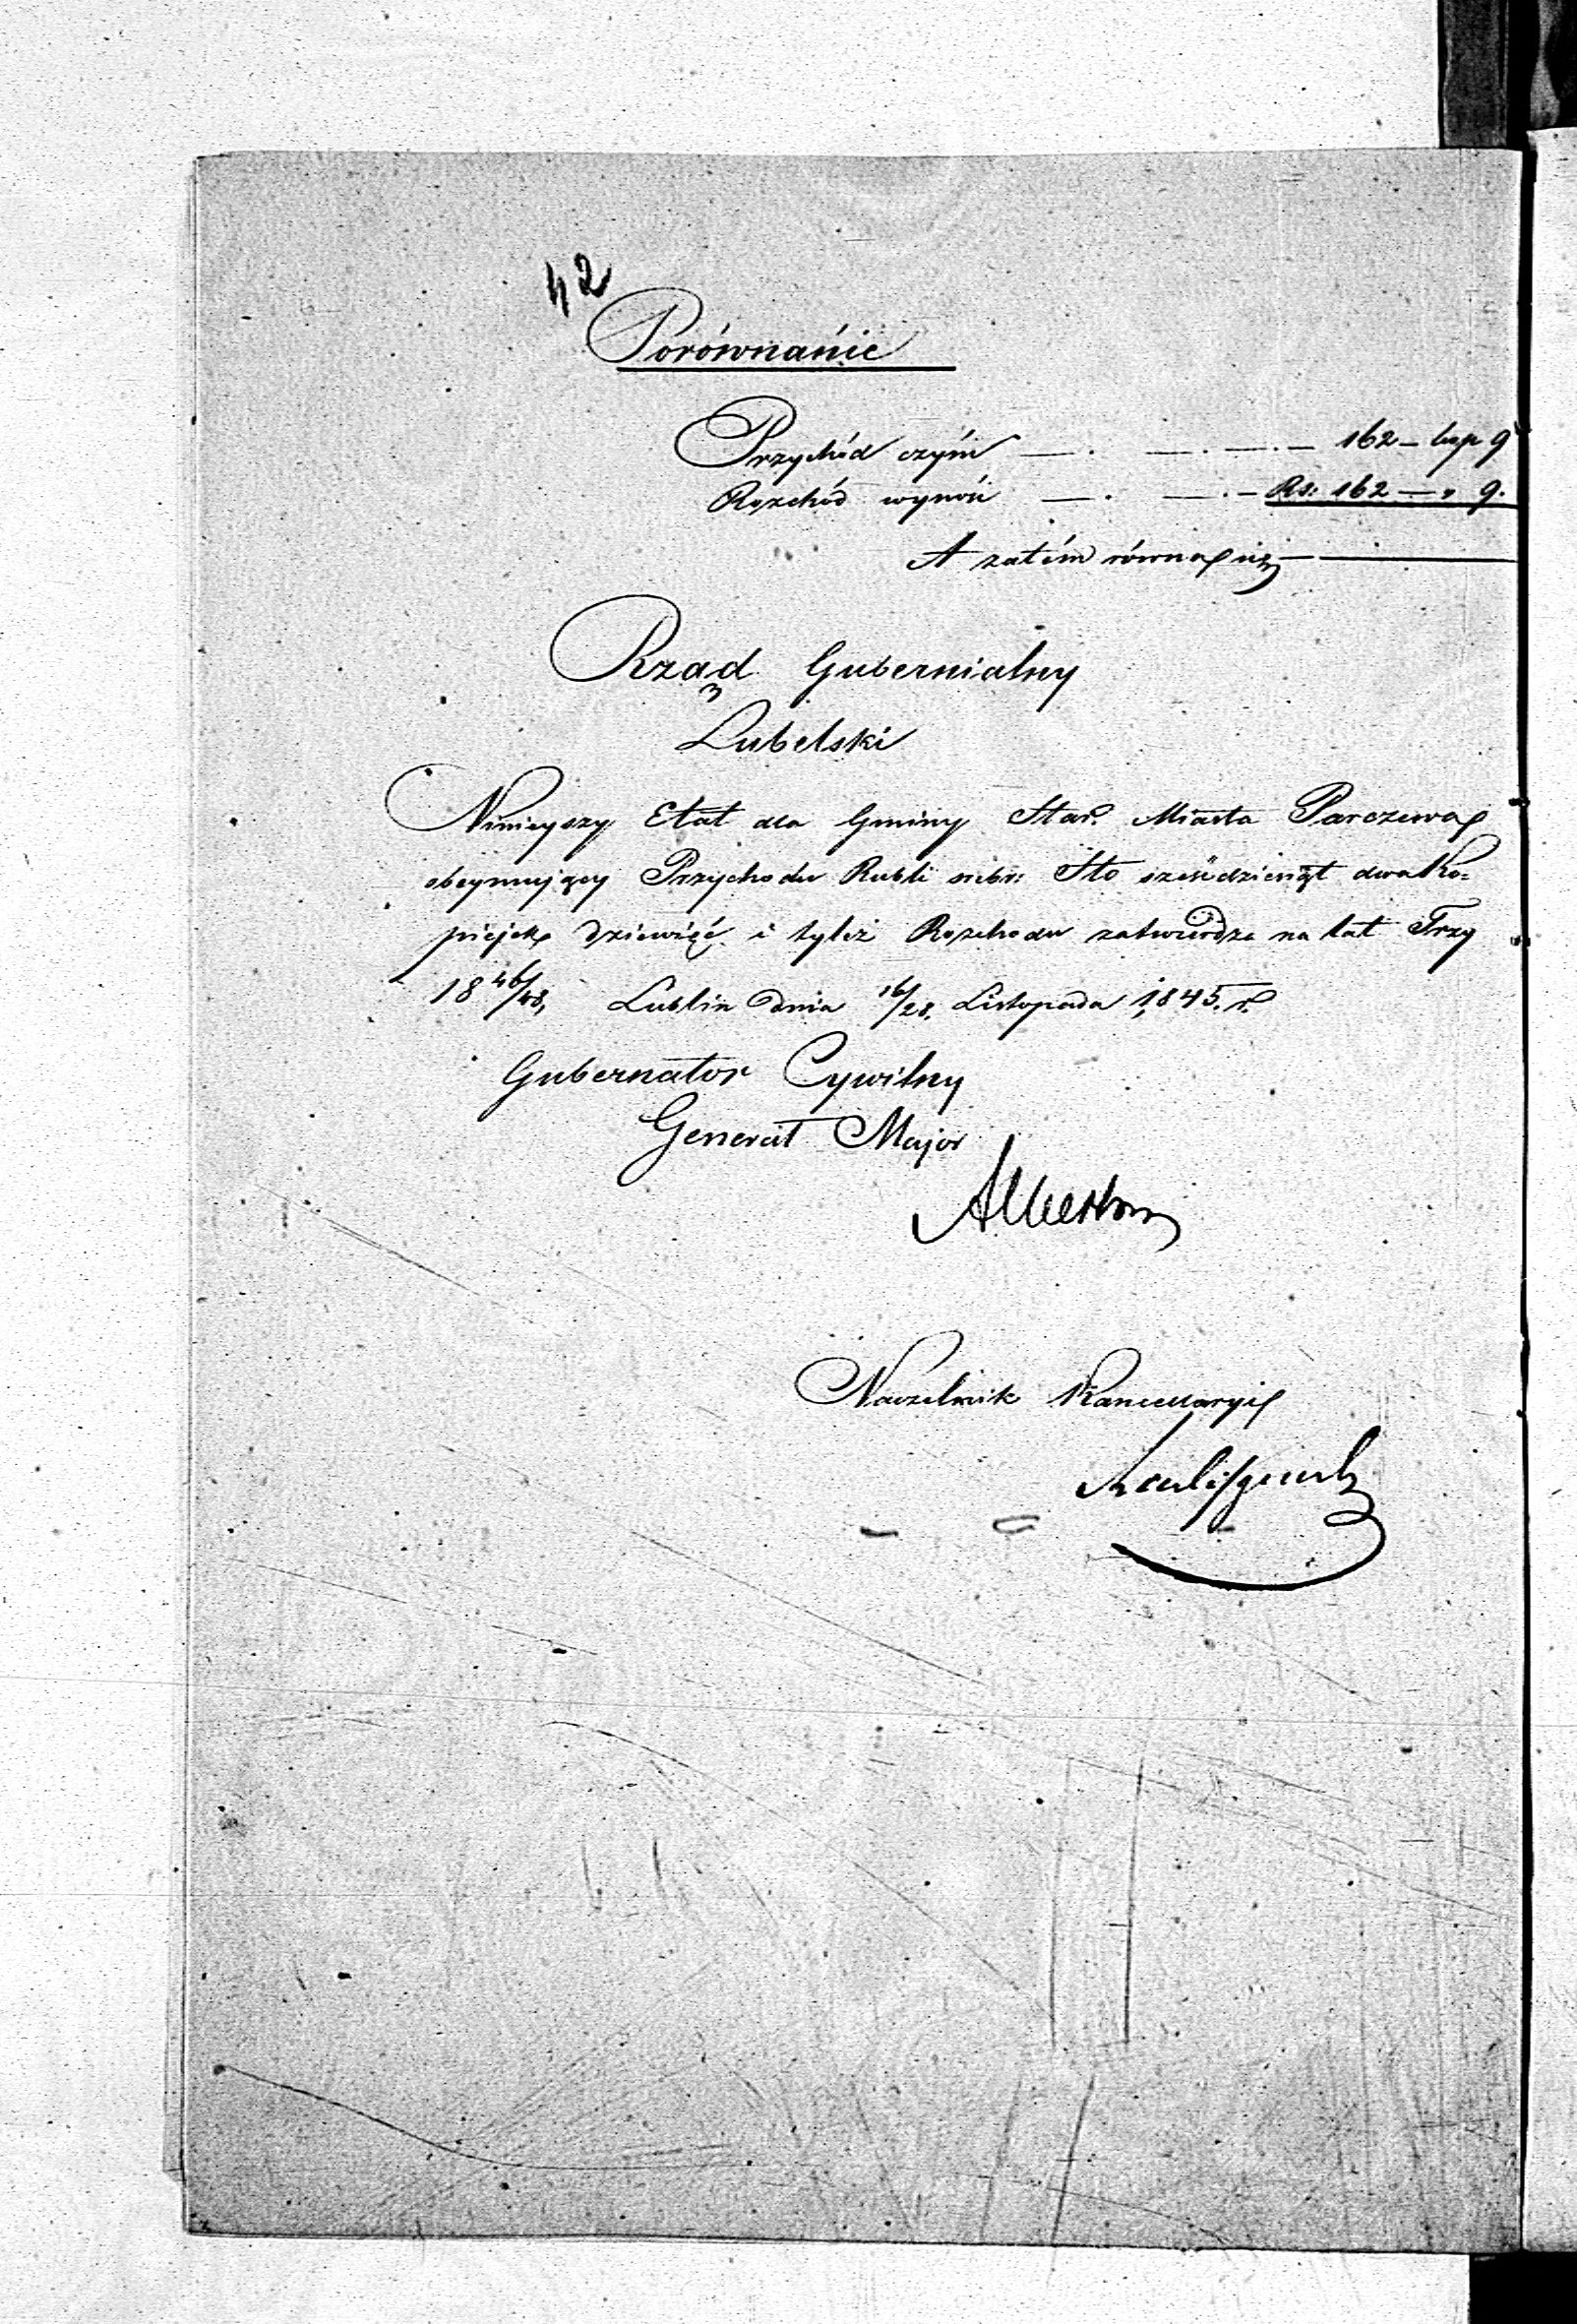 42
Porównanie
Przychód czyni — . — . — . — 162 — kop 9
Rozchód wynosi — . — . — Rs: 162 — " 9.
A zatém równa się —
Rząd Gubernialny
Lubelski
Ninieyszy Etat dla Gminy Star. Miasta Parczewa
obeymuiący Przychodu Rubli srebr: Sto sześćdziesiąt dwa Ko=
piejek dziewięć i tyleż Rozchodu zatwierdza na lat Trzy
18 46/48, Lublin dnia 16/28. Listopada 1845. r.
Gubernator Cywilny
Generał Major
Albertow
Naczelnik Kancellaryi